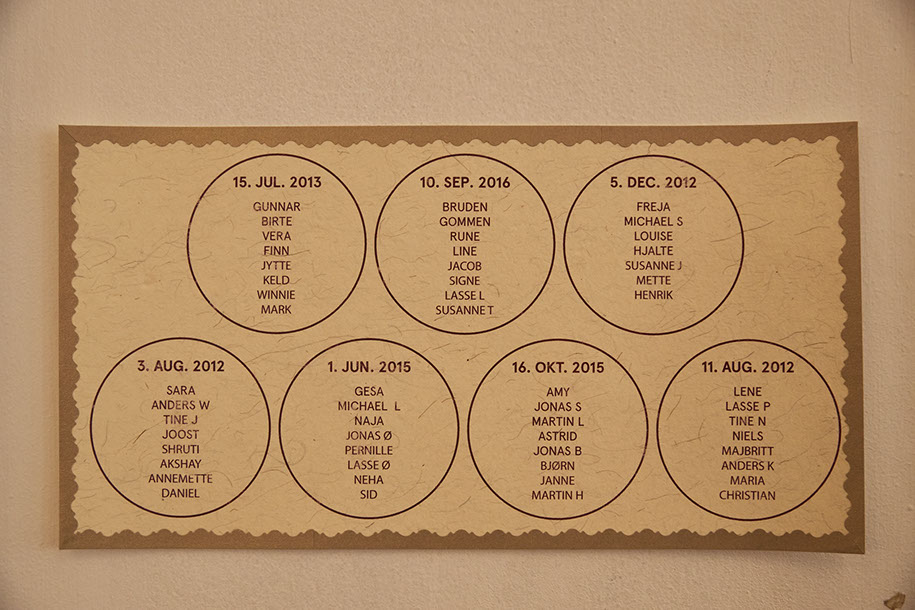 15. JUL. 2013
GUNNAR
BIRTE
VERA
FINN
JYTTE
KELD
WINNIE
MARK
10. SEP. 2016
BRUDEN
GOMMEN
RUNE
LINE
JACOB
SIGNE
LASSE L
SUSANNE T
5. DEC. 2012
FREJA
MICHAEL S
LOUISE
HJALTE
SUSANNE J
METTE
HENRIK
3. AUG. 2012
SARA
ANDERS W
TINE J
JOOST
SHRUTI
AKSHAY
ANNEMETTE
DANIEL
1. JUN. 2015
GESA
MICHAEL L
NAJA
JONAS Ø
PERNILLE
LASSE Ø
NEHA
SID
16. OKT. 2015
AMY
JONAS S
MARTIN L
ASTRID
JONAS B
BJØRN
JANNE
MARTIN H
11. AUG. 2012
LENE
LASSE P
TINE N
NIELS
MAJBRITT
ANDERS K
MARIA
CHRISTIAN